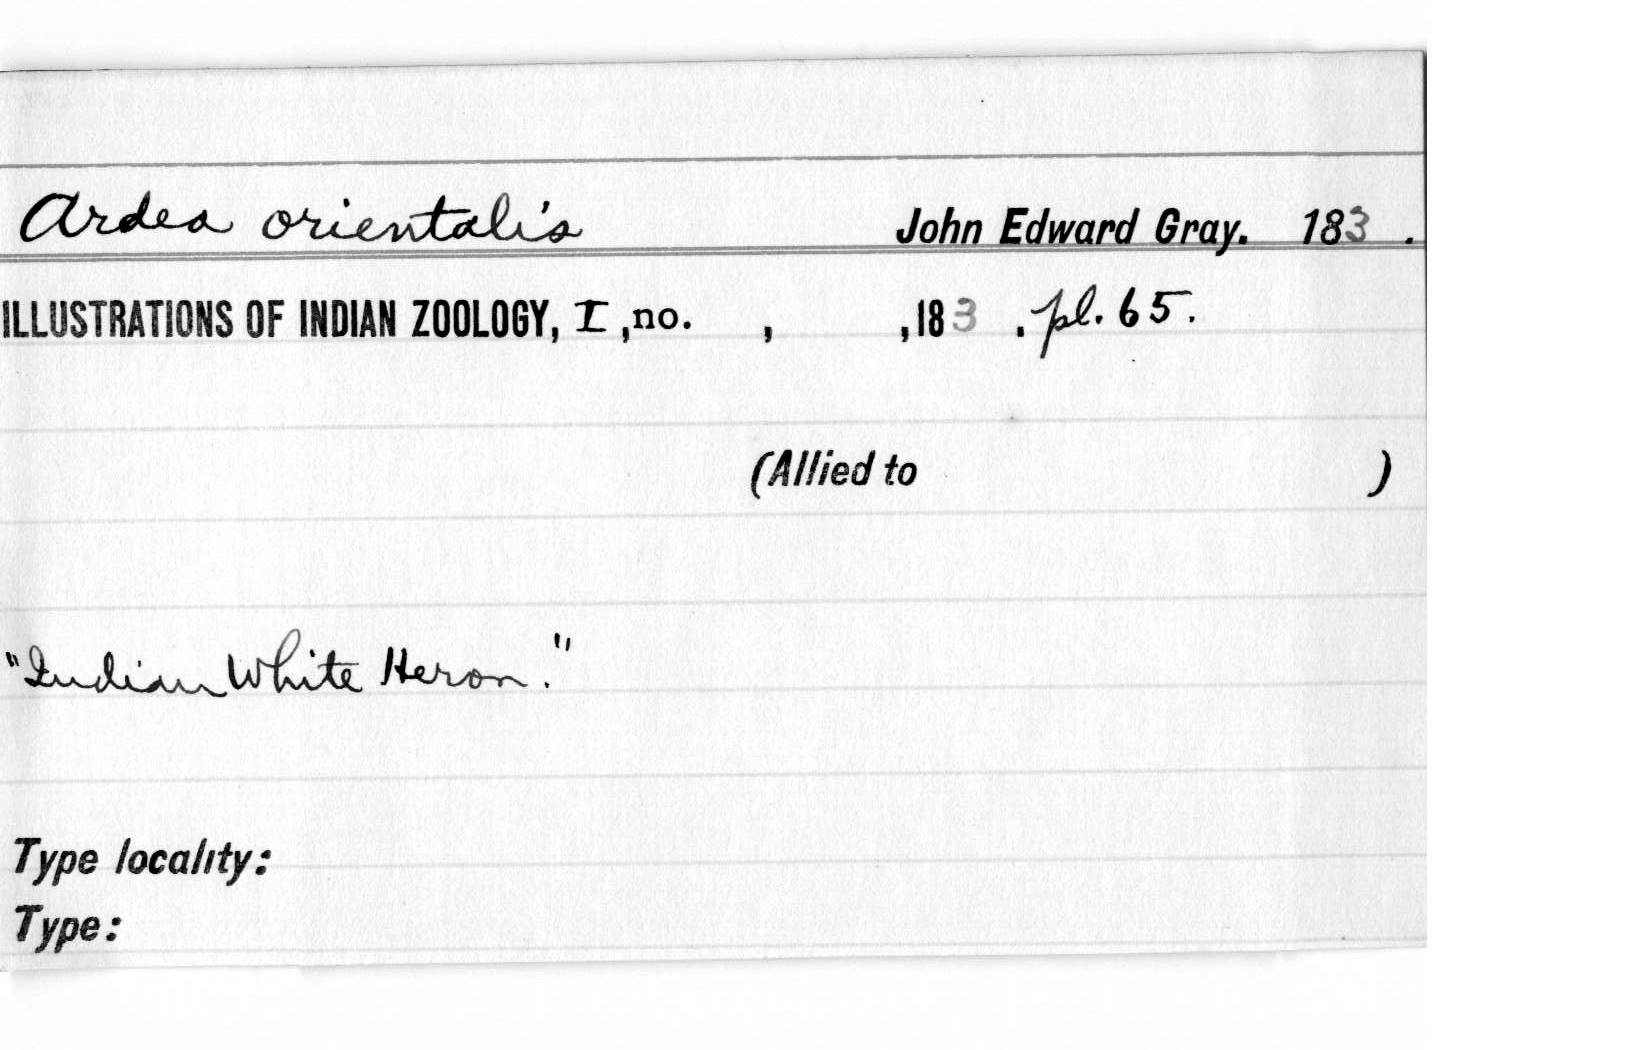 Ardea orientalis John Edward Gray. 183 .
ILLUSTRATIONS OF INDIAN ZOOLOGY, I ,no. , ,183 . pl. 65.
(Allied to )
"Indian White Heron."
Type locality:
Type: